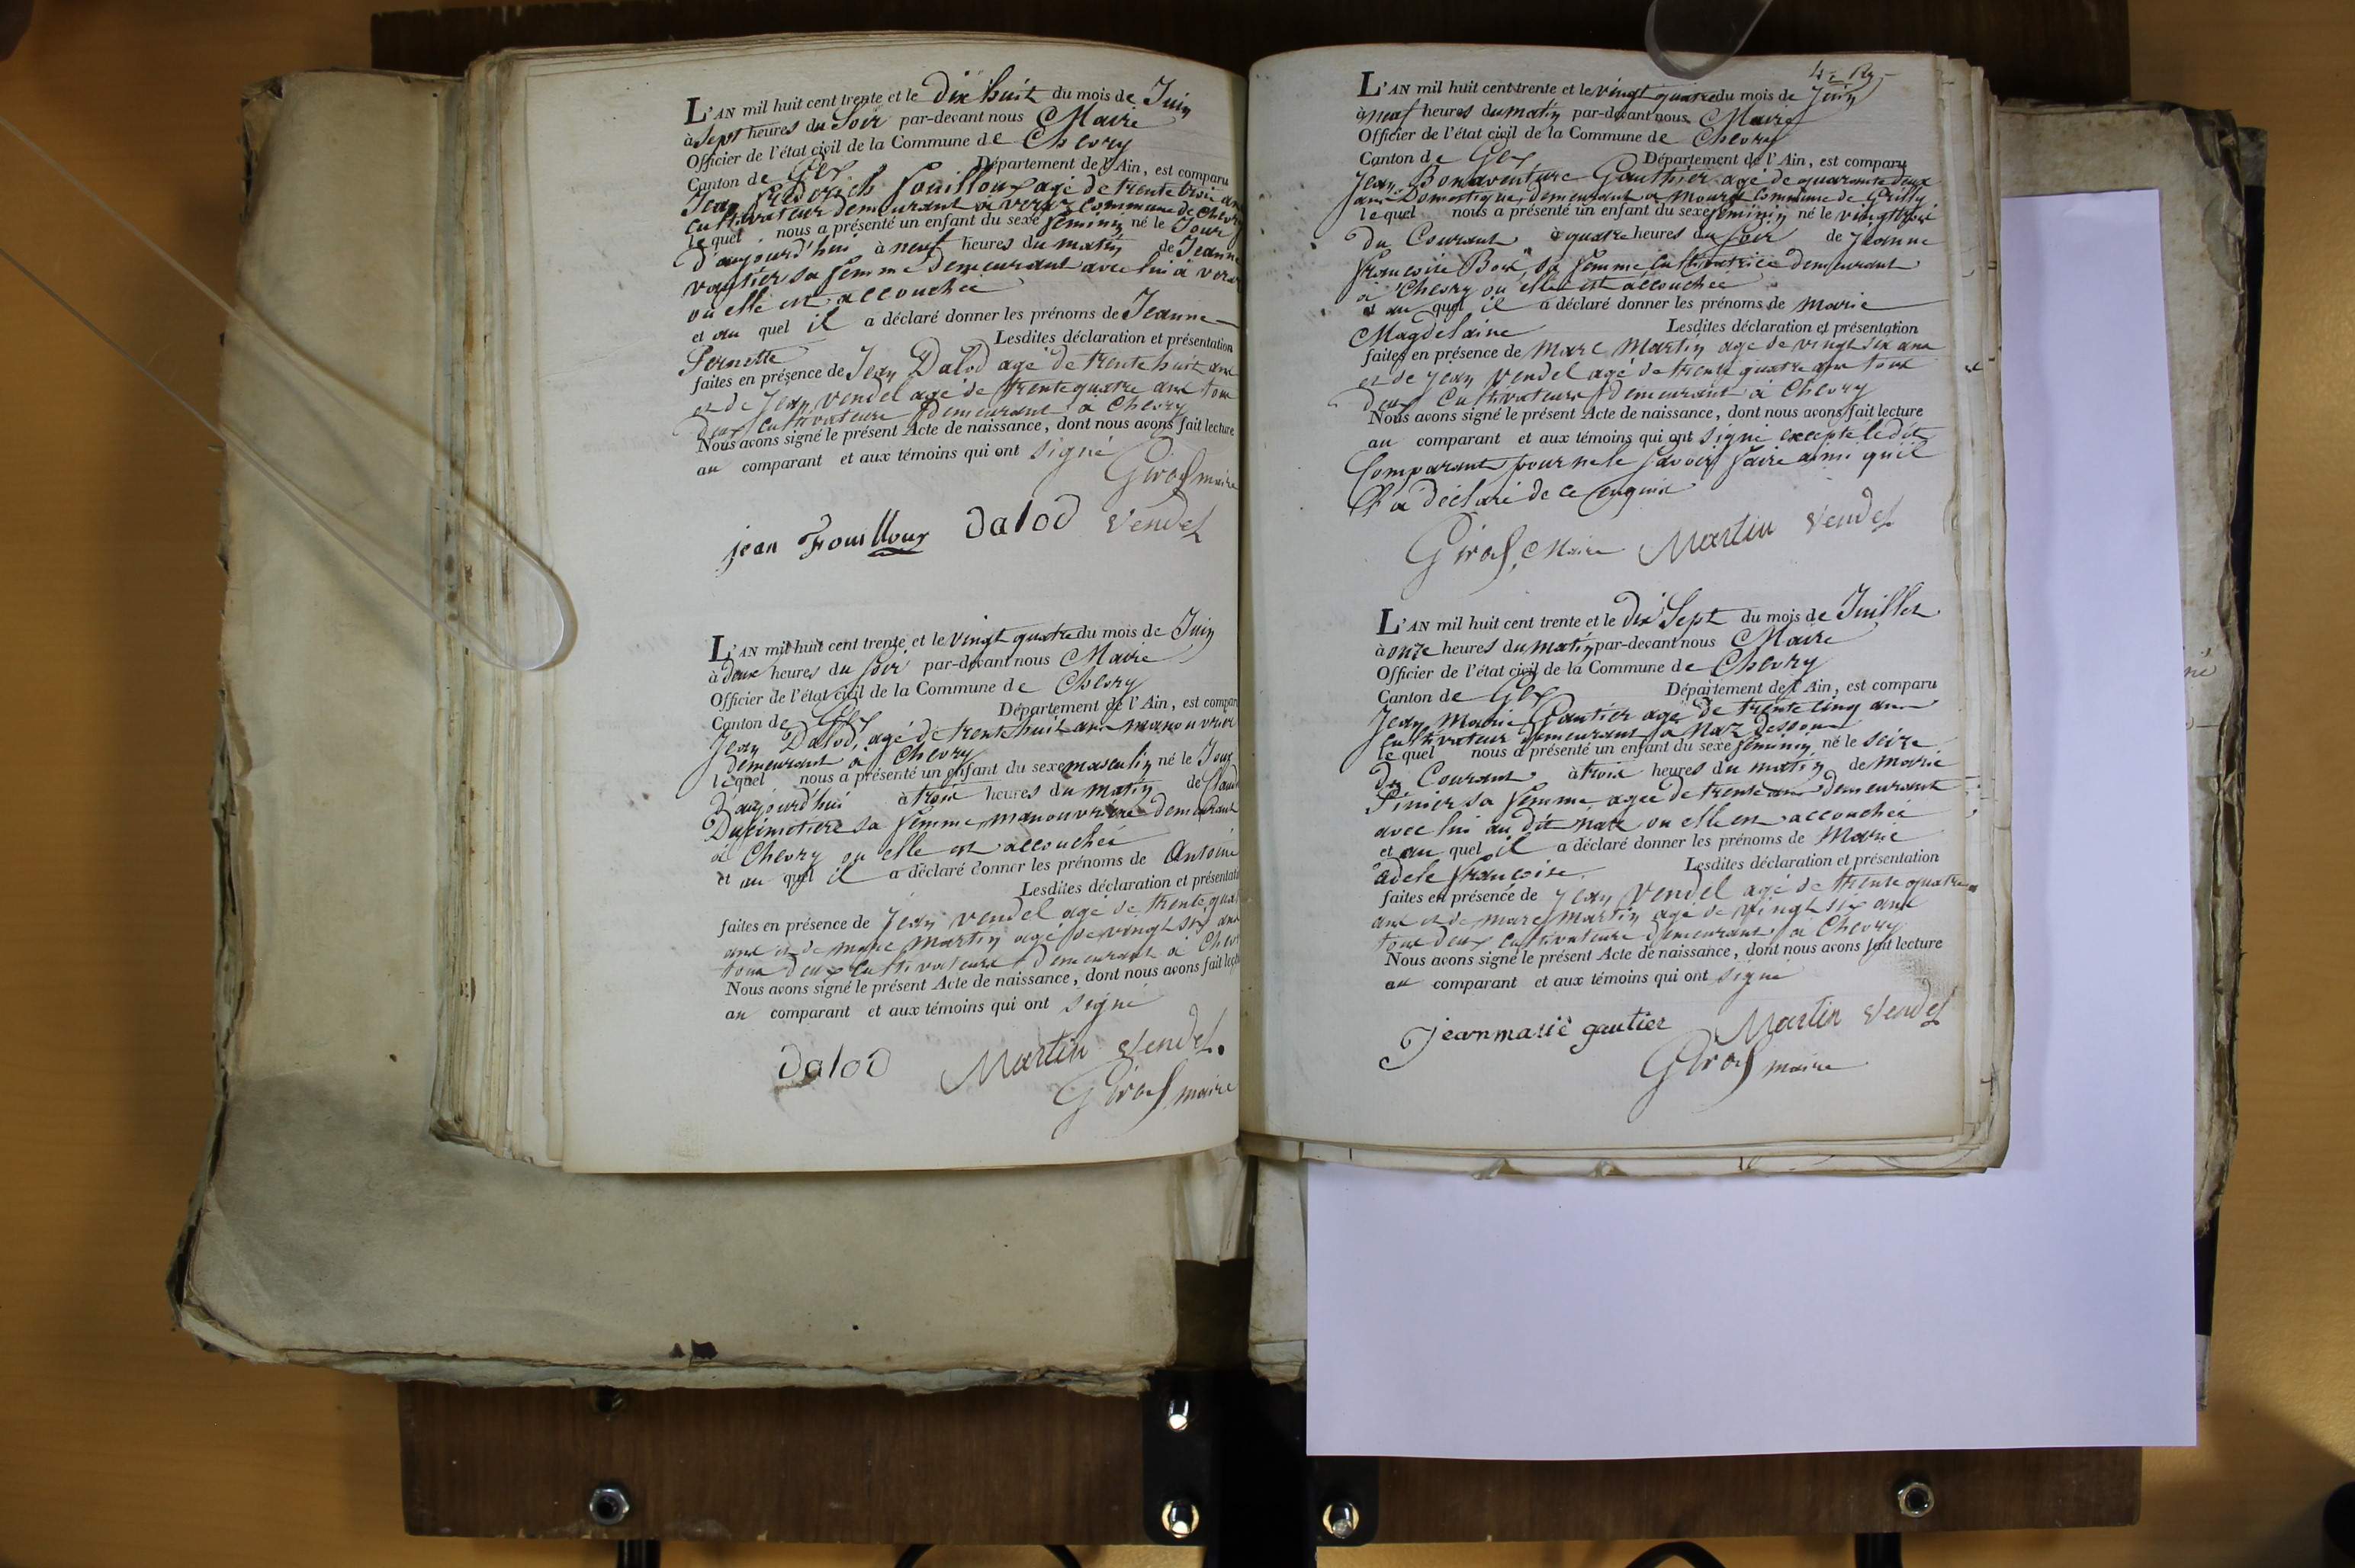 L'AN mil huit cent trente et le Dix huit du mois de Juin
à Sept heures du Soir par-devant nous Maire
Officier de l'état civil de la Commune de Chevry
Canton de Gex Département de l'Ain, est comparu
Jean fouilloux agé de trente trois ans
Cultivateur demeurant a veraz Commune de Chevry
lequel nous a présenté un enfant du sexe feminin né le Jour
D'aujourd'hui à neuf heures du matin de Jeanne
vautier sa femme Demeurant avec lui à veraz
ou elle est accouchée
et au quel il a déclaré donner les prénoms de Jeanne
Pernette Lesdites déclaration et présentation
faites en présence de Jean Dalod agé de trente huit ans
et de Jean vendel agé de trente quatre ans tous
deux Cultivateurs demeurant à Chevry
Nous avons signé le présent Acte de naissance, dont nous avons fait lecture
au comparant et aux témoins qui ont signé
Girod maire
jean Fouilloux Dalod Vendel
L'AN mil huit cent trente et le vingt quatre du mois de Juin
à deux heures du soir par-devant nous Maire
Officier de l'état civil de la Commune de Chevry
Canton de Gex Département de l'Ain, est comparu
Jean Dalod, agé de trente huit ans manouvrier
demeurant à Chevry
lequel nous a présenté un enfant du sexe masculin né le Jour
D'aujourd'hui à trois heures du matin de
Ducimetiere sa femme, manouvriere demeurant
à Chevry ou elle est accouchée
et au quel il a déclaré donner les prénoms de Antoine
Lesdites déclaration et présentation
faites en présence de Jean vendel agé de trente quatre
ans et de marc martin agé de vingt six ans
tous deux Cultivateurs demeurant à Chevry
Nous avons signé le présent Acte de naissance, dont nous avons fait lecture
au comparant et aux témoins qui ont signé
Dalod Martin Vendel.
Girod maire
L'AN mil huit cent trente et le vingt quatre du mois de Juin
à neuf heures du matin par-devant nous Maire
Officier de l'état civil de la Commune de Chevry
Canton de Gex Département de l'Ain, est comparu
Jean Bonaventure Gauthier agé de quarante deux
ans Domestique, demeurant a Mourex Commune de Grilly
lequel nous a présenté un enfant du sexe feminin né le vingt trois
Du Courant à quatre heures du Soir de Jeanne
françoise sa femme Cultivatrice demeurant
à Chevry ou elle est accouchée
et au quel il a déclaré donner les prénoms de marie
Magdelaine Lesdites déclaration et présentation
faites en présence de Marc Martin agé de vingt six ans
et de Jean vendel agé de trente quatre ans tous
deux Cultivateurs demeurant à Chevry
Nous avons signé le présent Acte de naissance, dont nous avons fait lecture
au comparant et aux témoins qui ont signé excepté le dit
Comparant pour ne le savoir faire ainsi qu'il
l'a déclaré de ce enquis
Girod, Maire Martin Vendel
L'AN mil huit cent trente et le Dix Sept du mois de Juillet
à onze heures du matin par-devant nous Maire
Officier de l'état civil de la Commune de Chevry
Canton de Gex Département de l'Ain, est comparu
Jean Marie Gautier agé de trente cinq ans
Cultivateur demeurant a Naz Dessous
lequel nous a présenté un enfant du sexe feminin né le seize
Du Courant à trois heures du matin de marie
Pinier sa femme agée de trente ans demeurant
avec lui au dit Naz ou elle est accouchée
et au quel il a déclaré donner les prénoms de Marie
adele françoise. Lesdites déclaration et présentation
faites en présence de Jean Vendel agé de trente quatre
ans et de marc martin agé de vingt six ans
tous deux Cultivateurs demeurant a Chevry
Nous avons signé le présent Acte de naissance, dont nous avons fait lecture
au comparant et aux témoins qui ont signé
jean marie gautier Martin Vendel
Girod maire